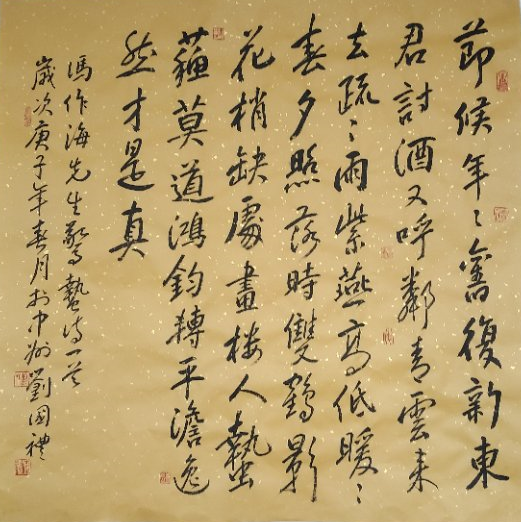 節候年〻舊復新東
君討酒又呼鄰青雲來
去疏〻雨紫燕高低暖〻
春夕照落時雙鶴影
花梢缺處畫樓人蟄
蘇莫道鴻鈞轉平澹逸
然才是真
馮作海先生驚蟄诗一首
歲次庚子年春月於中州劉國禮